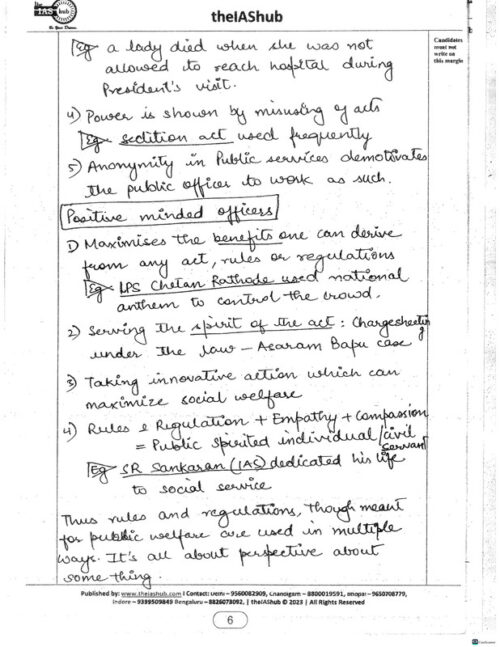 The
IAS hub
Be Your Dream
theIAShub
Candidates
must not
write on
this margin
Eg a lady died when she was not
allowed to reach hospital during
President's visit.
4) Power is shown by misusing of acts
Eg sedition act used frequently
5) Anonymity in Public services demotivates
the public officer to work as such.
Positive minded officers
1) Maximises the benefits one can derive
from any act, rules or regulations
Eg IPS Chetan Rathode used national
anthem to control the crowd.
2) Serving the spirit of the act : Chargesheeting
under the law – Asaram Bapu case
3) Taking innovative action which can
maximize social welfare
4) Rules & Regulation + Empathy + Compassion
= Public spirited individual / civil servant
Eg SR Sankaran (IAS) dedicated his life
to social service
Thus rules and regulations, though meant
for public welfare are used in multiple
ways. It's all about perspective about
something.
Published by: www.theiashub.com I Contact: Delhi – 9560082909, Chandigarh – 8800019591, Bhopal- 9650708779,
Indore – 9399509849 Bengaluru – 8826078092, | theIAShub © 2023 | All Rights Reserved
6